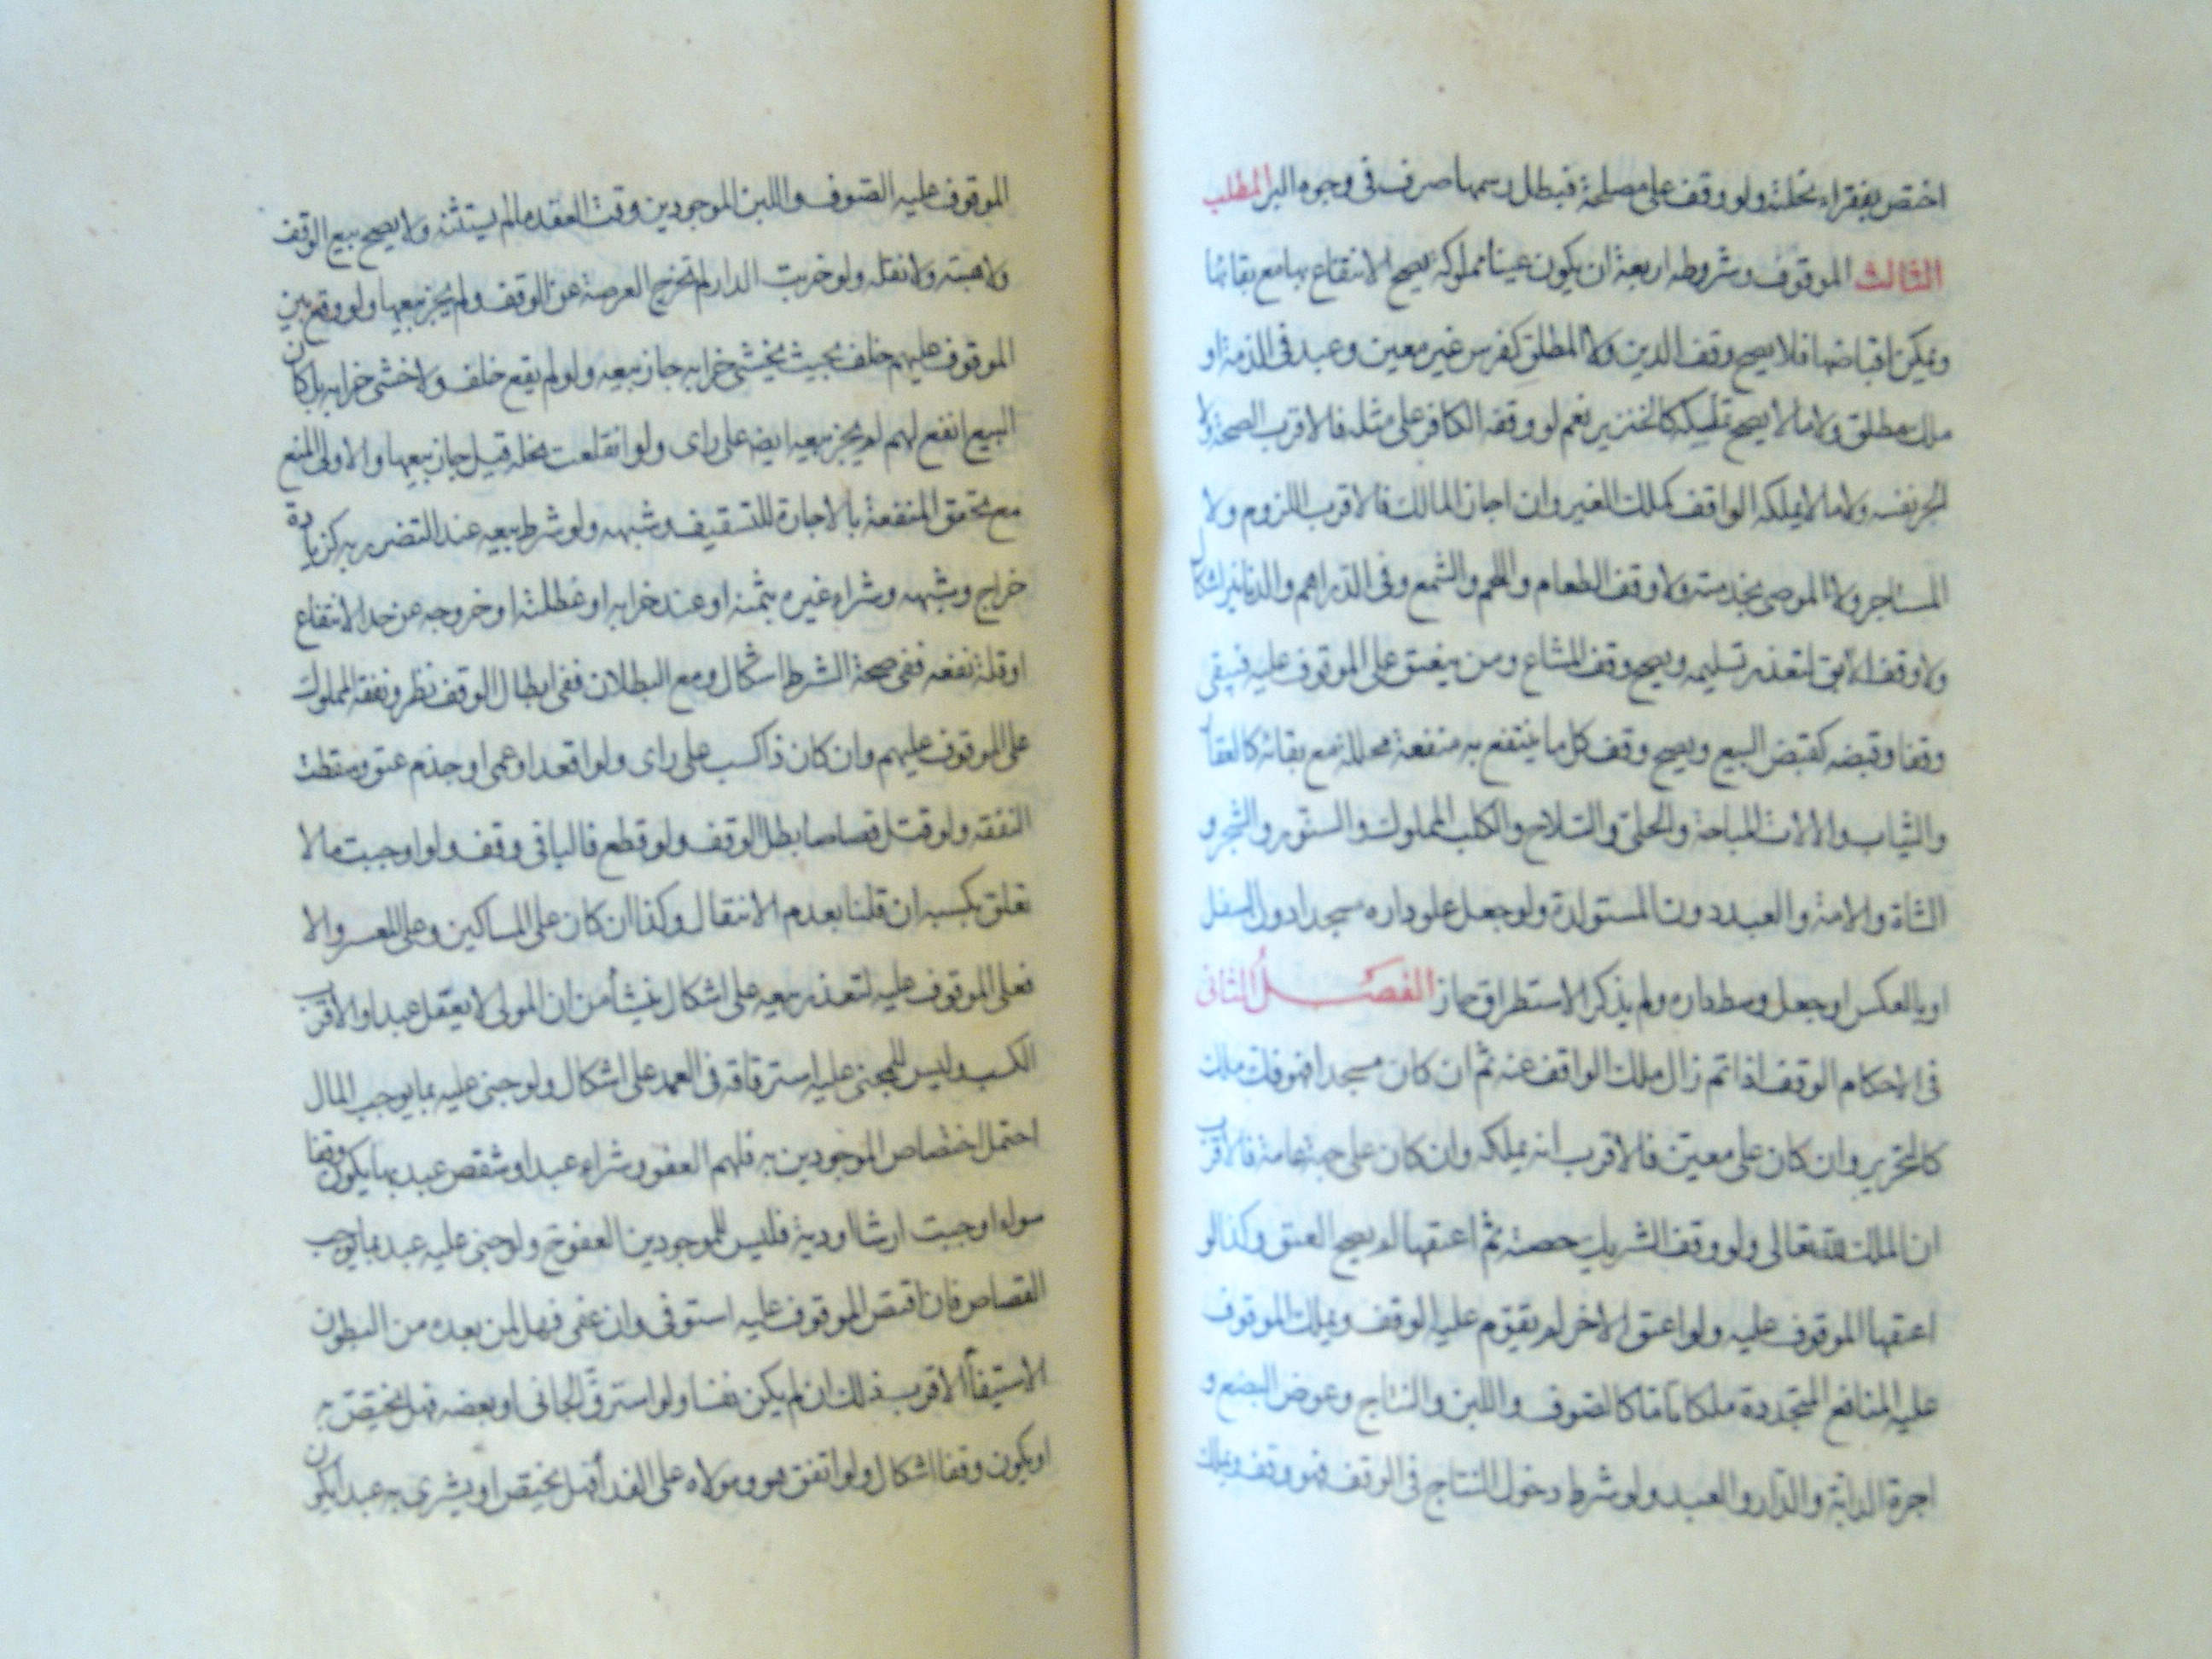 اختص بفقراء محلته ولو وقف على مصلحة فبطل رسمها صرف فى وجوه البر المطلب
الثالث الموقوف وشروطه اربعة ان يكون عينا مملوكة يصح الانتفاع بها مع بقائها
ويمكن اقباضها فلا يصح وقف الدين ولا المطلق كفرس غير معين وعبد فى الذمة او
ملك مطلق ولا ما لا يصح تملكه كالخنزير نعم لو وقفه الكافر على مثله فالاقرب الصحة ولا
الحر نفسه ولا ما لا يملكه الواقف كملك الغير وان اجاز المالك فالاقرب اللزوم ولا
المستاجر ولا الموصى بخدمته ولا وقف الطعام واللحم والشمع وفى الدراهم والدنانير اشكال
ولا وقف الابق لتعذر تسليمه ويصح وقف المشاع ومن ينعتق على الموقوف عليه فيبقى
وقفا وقبضه كقبض البيع ويصح وقف كل ما ينتفع به منفعة محللة مع بقائه كالعقار
والثياب والالات المباحة والحلى والسلاح والكلب المملوك والسنور والشجر و
الشاة والامة والعبد دون المستولدة ولو جعل علو داره مسجدا دون السفل
او بالعكس او جعل وسط داره ولم يذكر الاستطراق جاز الفصل الثانى
فى الاحكام الوقف اذا تم زال ملك الواقف عنه ثم ان كان مسجدا فهو فك ملك
كالتحرير وان كان على معين فالاقرب انه يملكه وان كان على جهة عامة فالاقرب
ان الملك لله تعالى ولو وقف الشريك حصته ثم اعتقها لم يصح العتق وكذا لو
اعتقها الموقوف عليه ولو اعتق الاخر لم يقوم عليه الوقف ويملك الموقوف
عليه المنافع المتجددة ملكا تاما كالصوف واللبن والنتاج وعوض البضع و
اجرة الدابة والدار والعبد ولو شرط دخول النتاج فى الوقف فهو وقف ويملك
الموقوف عليه الصوف واللبن الموجودين وقت العقد ما لم يستثنه ولا يصح بيع الوقف
ولا هبته ولا نقله ولو خربت الدار لم تخرج العرصة عن الوقف ولم يجز بيعها ولو وقع بين
الموقوف عليهم خلف بحيث يخشى خرابه جاز بيعه ولو لم يقع خلف ولا خشى خرابه بل كان
البيع انفع لهم لم يجز بيعه ايضا على راى ولو انقلعت نخلة قيل جاز بيعها والاولى المنع
مع تحقق المنفعة بالاجارة للتسقيف وشبهه ولو شرط بيعه عند التضرر به كزيادة
خراج وشبهه وشراء غيره بثمنه او عند خرابه او عطلته او خروجه عن حد الانتفاع
او قلة نفعه ففى صحة الشرط اشكال ومع البطلان ففى ابطال الوقف نظر ونفقة المملوك
على الموقوف عليهم وان كان ذا كسب على راى ولو اقعد او عمى او جذم عتق وسقطت
النفقة ولو قتل قصاصا بطل الوقف ولو قطع فالباقى وقف ولو اوجبت مالا
تعلق بكسبه ان قلنا بعدم الانتقال وكذا ان كان على المساكين وعلى المعسر والا
فعلى الموقوف عليه لتعذر بيعه على اشكال ينشأ من ان المولى لا يعقل عبدا والاقرب
الكسب وليس للمجنى عليه استرقاقه فى العمد على اشكال ولو جنى عليه بما يوجب المال
احتمل اختصاص الموجودين به فلهم العفو وشراء عبد او شقص عبد بها يكون وقفا
سواء اوجبت ارشا او دية فليس للموجودين العفو ولو جنى عليه عبد بما يوجب
القصاص فان اقتص الموقوف عليه استوفى وان عفى فهل لمن بعده من البطون
الاستيفأ الاقرب ذلك ان لم يكن نفسا ولو استرق الجانى او بعضه فهل يختص به
او يكون وقفا اشكال ولو اتفق هو ومولاه على الفدأ فهل يختص او يشرى به عبدا يكون